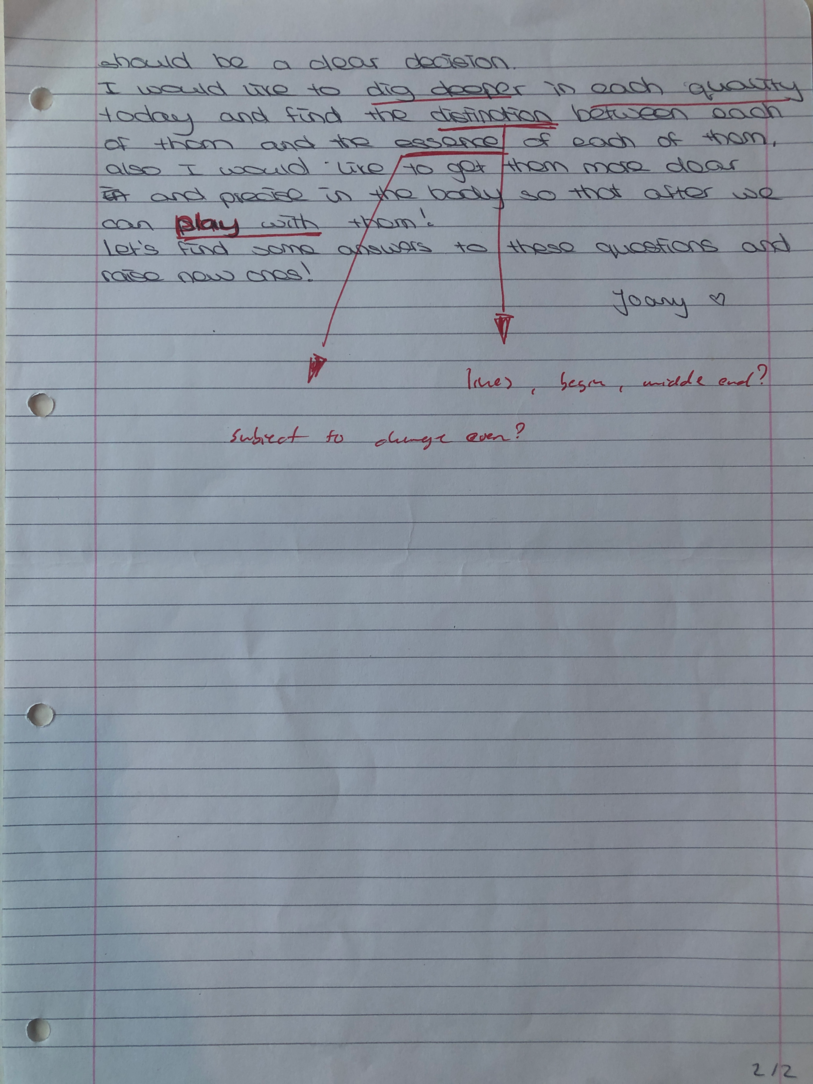 should be a clear decision.
I would like to dig deeper in each quality
today and find the distinction between each
of them and the essence of each of them.
also I would like to get them more clear
and precise in the body so that after we
can play with them!
Let's find some answers to these questions and
raise new ones!
Joany ♡
lines, begin, middle end?
subject to change even?
2/2